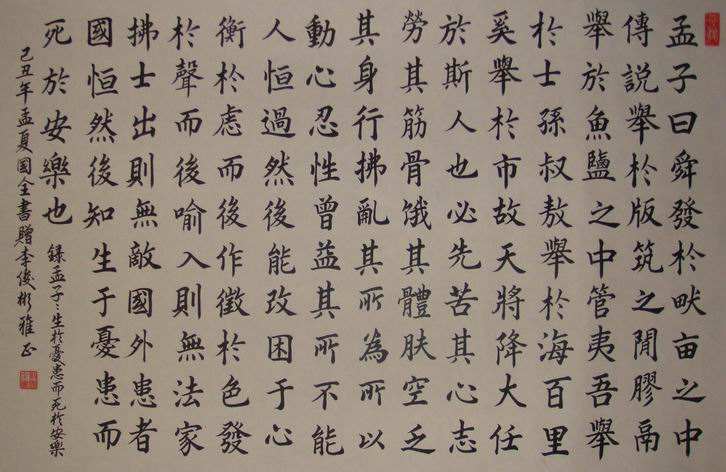 孟子曰舜發於畎亩之中
傳說舉於版筑之閒膠鬲
舉於魚鹽之中管夷吾舉
於士孫叔敖舉於海百里
奚舉於市故天將降大任
於斯人也必先苦其心志
勞其筋骨饿其體肤空乏
其身行拂亂其所為所以
動心忍性曾益其所不能
人恒過然後能改困于心
衡於慮而後作徵於色發
於聲而後喻入則無法家
拂士出則無敵國外患者
國恒然後知生于憂患而
死於安樂也 錄孟子：生於憂患而死於安樂
己丑年孟夏國全書贈李俊彬雅正